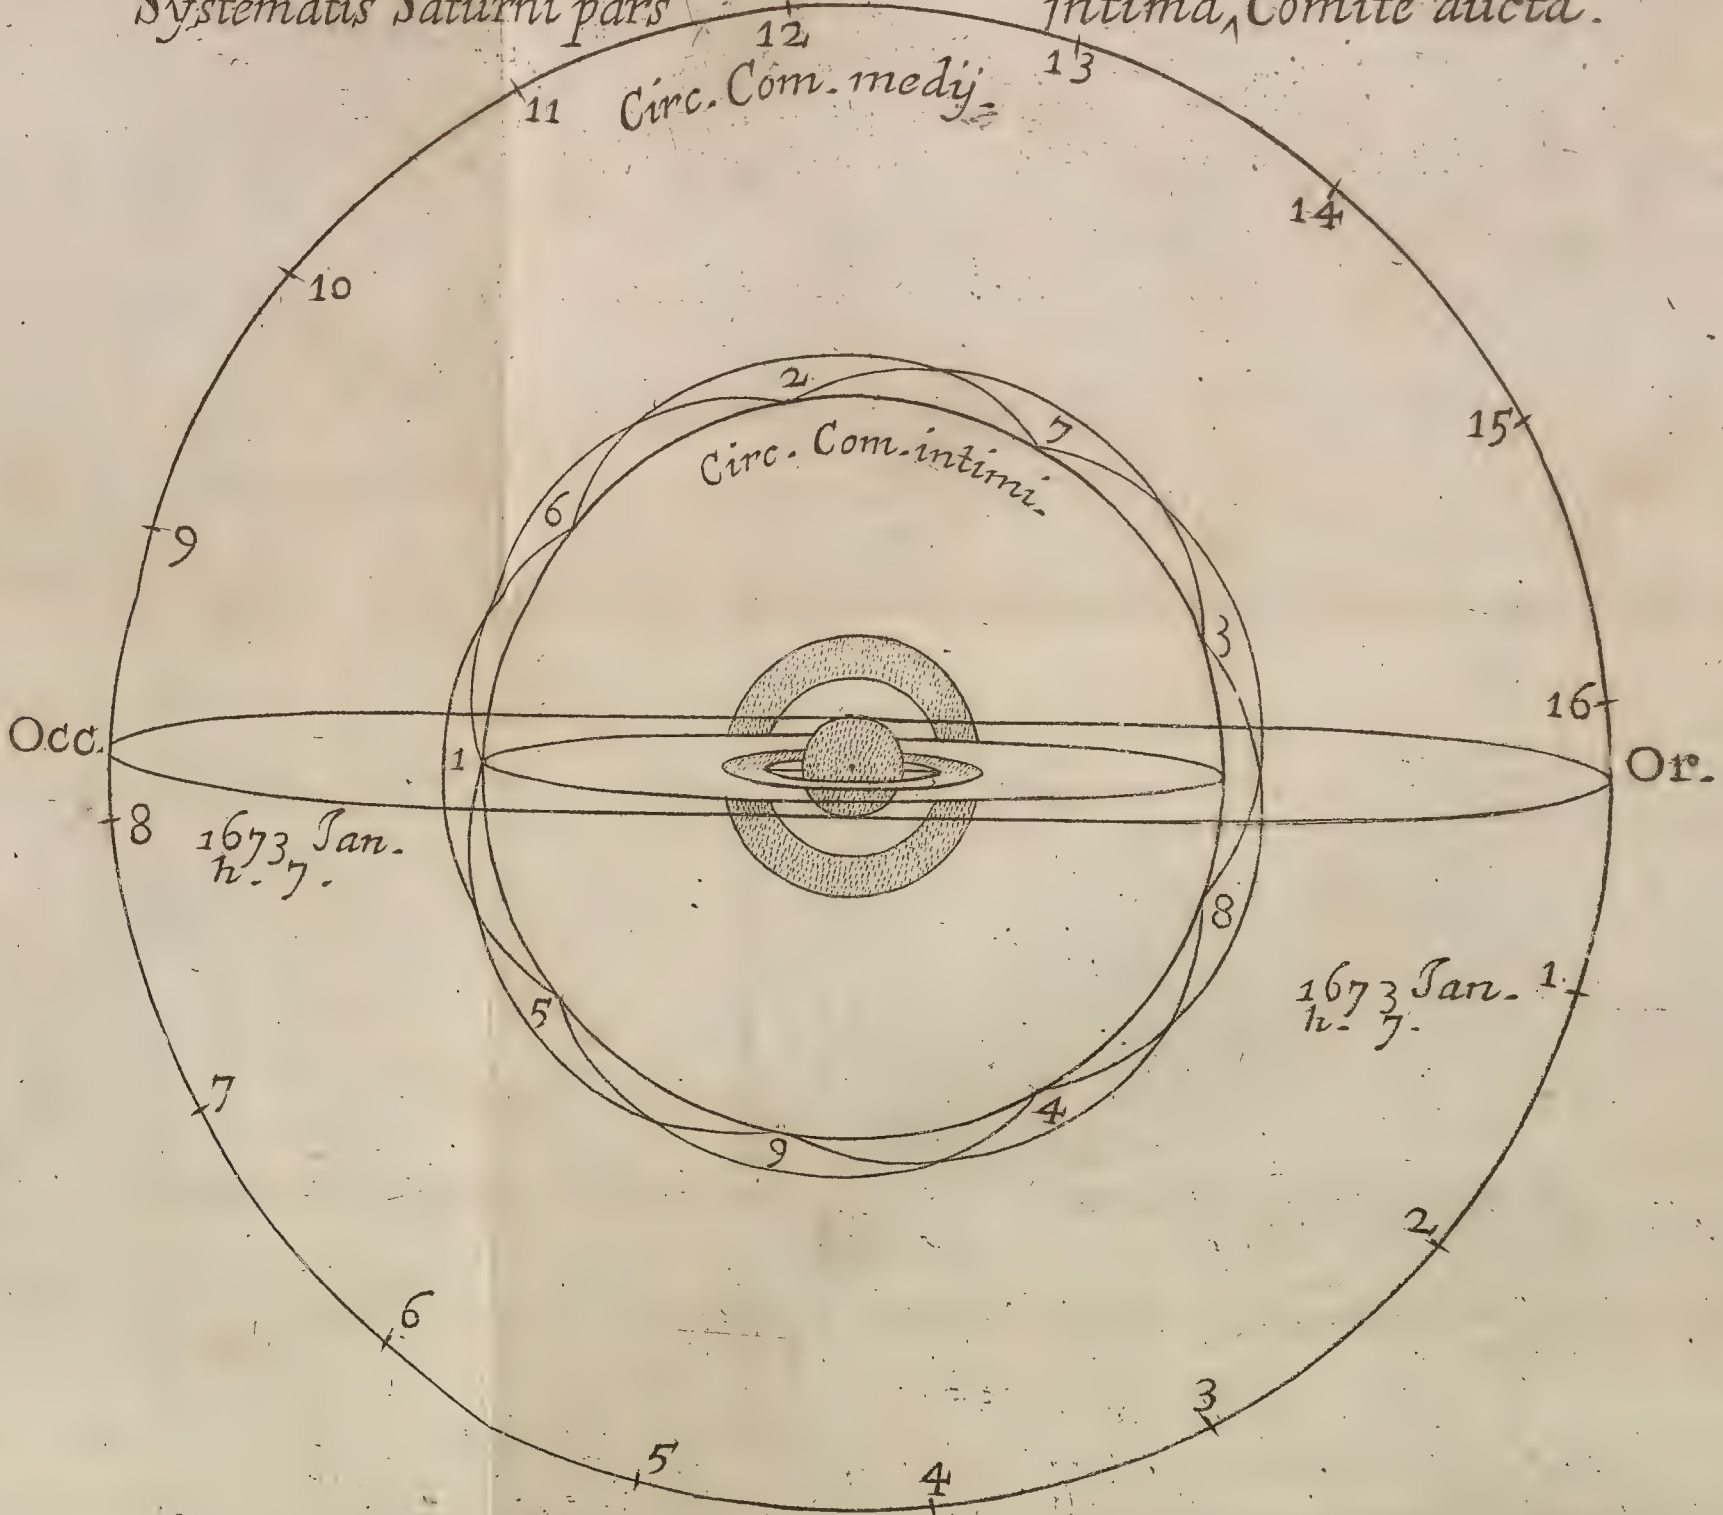 Systematis Saturni pars intima ‸ Comite aucta.
12
13
11
Circ. Com. medij.
14
10
2
15
7
Circ. Com. intimi.
6
9
3
16
Occ.
1
Or.
8
1673 Jan.
h. 7.
8
1673 Jan. 1.
h. 7.
5
7
4
9
2
6
3
5
4